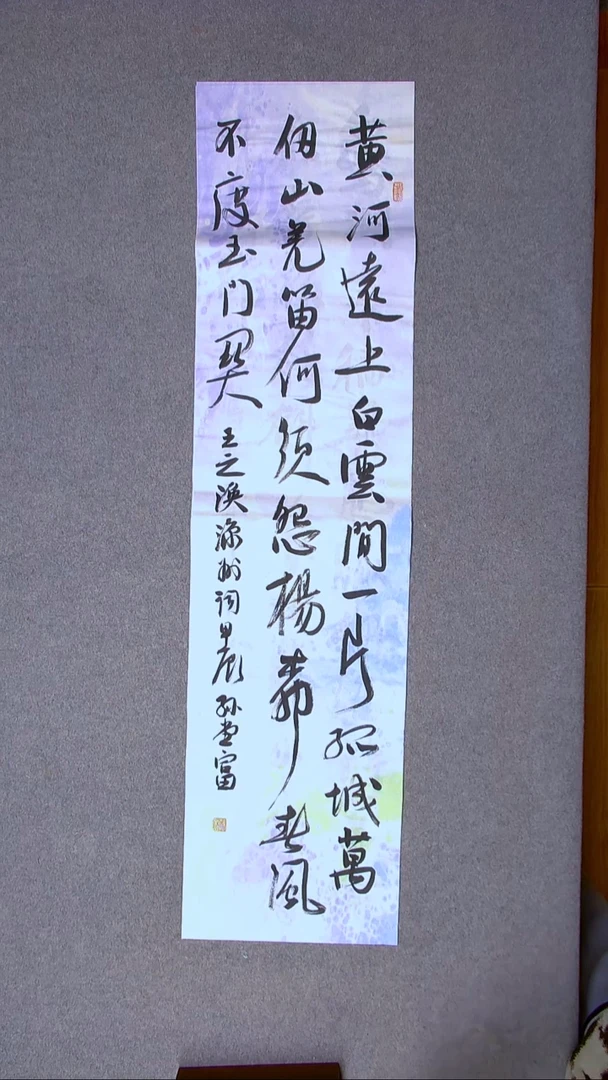 黄河遠上白雲間一片孤城萬
仞山羌笛何须怨楊柳春風
不度玉門關 王之渙涼州詞甲辰 孙富